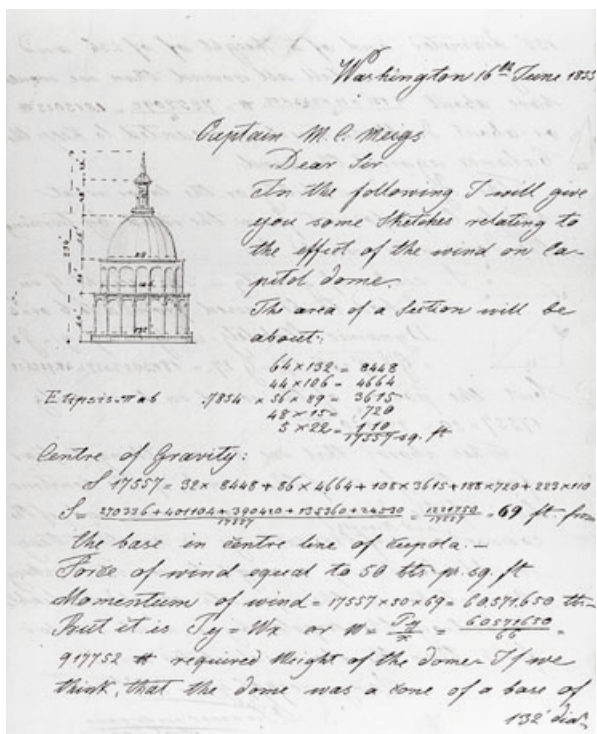 Washington 16th June 1855
Captain M. C. Meigs
Dear Sir
In the following I will give
you some Sketches relating to
the effect of the wind on Ca-
pitol dome.
The area of a Section will be
about:
64 × 132 = 8448
44 × 106 = 4664
Elipsis = π a b .7854 × 56 × 89 = 3615
48 × 15 = 720
5 × 22 = 110
17557 sq. ft
Centre of Gravity:
S 17557 = 32 × 8448 + 86 × 4664 + 108 × 3615 + 188 × 720 + 223 × 110
S = 270336 + 401104 + 390420 + 135360 + 24530 / 17557 = 1221750 / 17557 = 69 ft. from
the base in centre line of cupola. —
Force of wind equal to 50 lbs pr. sq. ft
Momentum of wind = 17557 × 50 × 69 = 60.571.650 lbs
But it is Ty = Wx or W = Ty / x = 60571650 / 66 =
917752 # required Weight of the dome. If we
think, that the dome was a cone of a base of
132' dia.